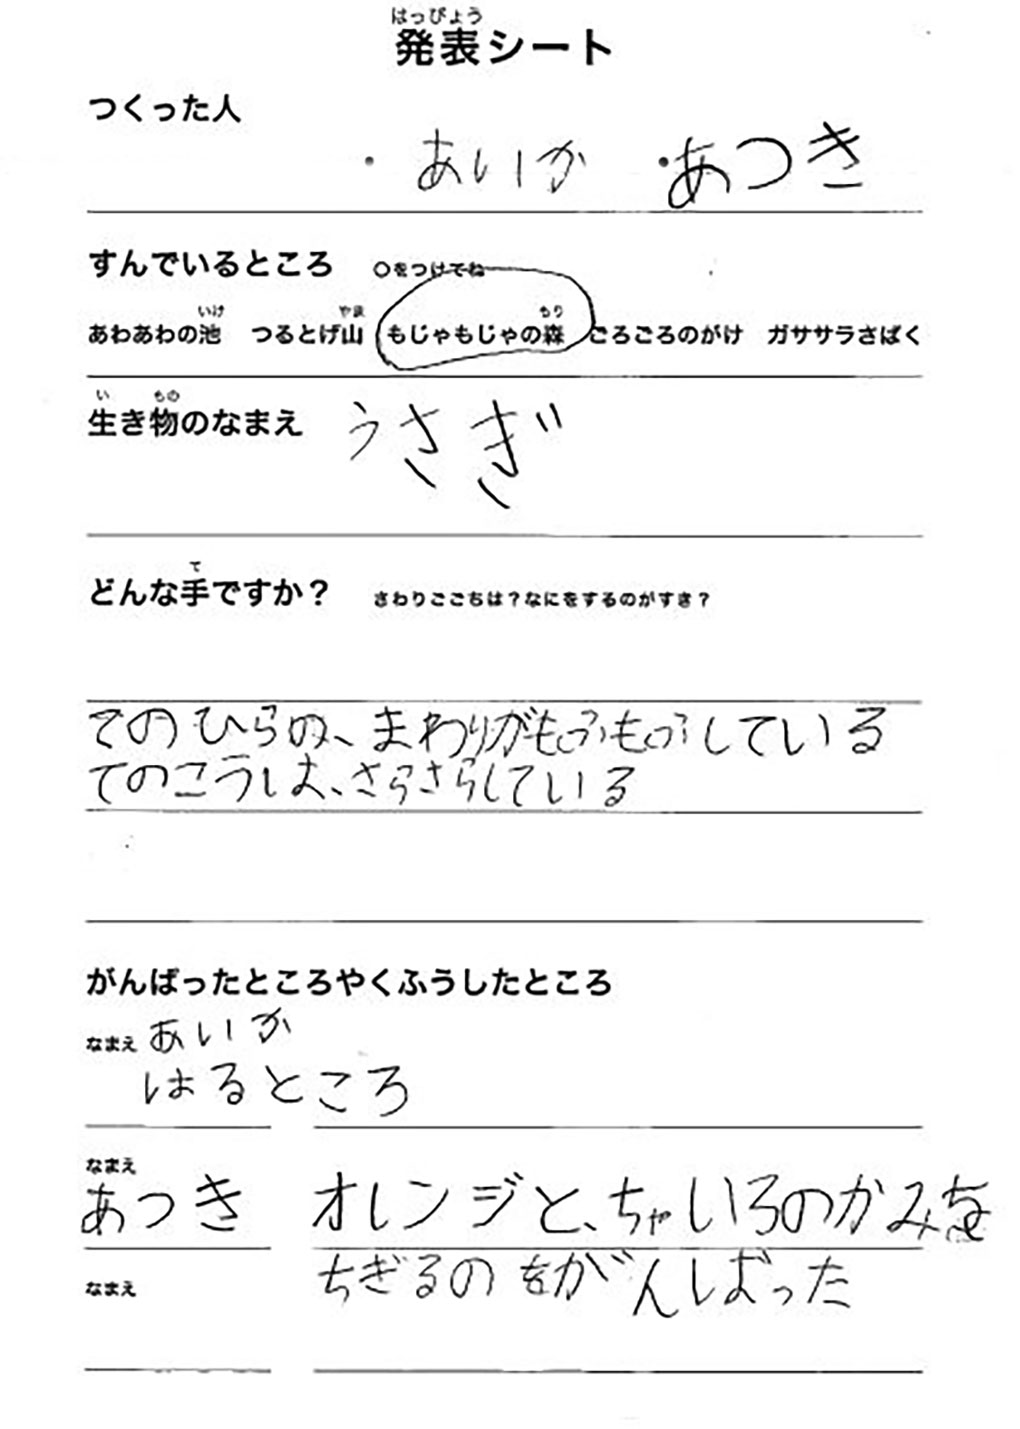 はっぴょう
発表シート
つくった人
・あいか ・あつき
すんでいるところ ○をつけてね
いけ やま もり
あわあわの池 つるとげ山 もじゃもじゃの森 ごろごろのがけ ガササラさばく
い もの
生き物のなまえ うさぎ
て
どんな手ですか？ さわりごこちは？なにをするのがすき？
てのひらの、まわりがもふもふしている
てのこうは、さらさらしている
がんばったところやくふうしたところ
なまえ あいか
はるところ
なまえ
あつき オレンジと、ちゃいろのかみを
なまえ ちぎるのをがんばった